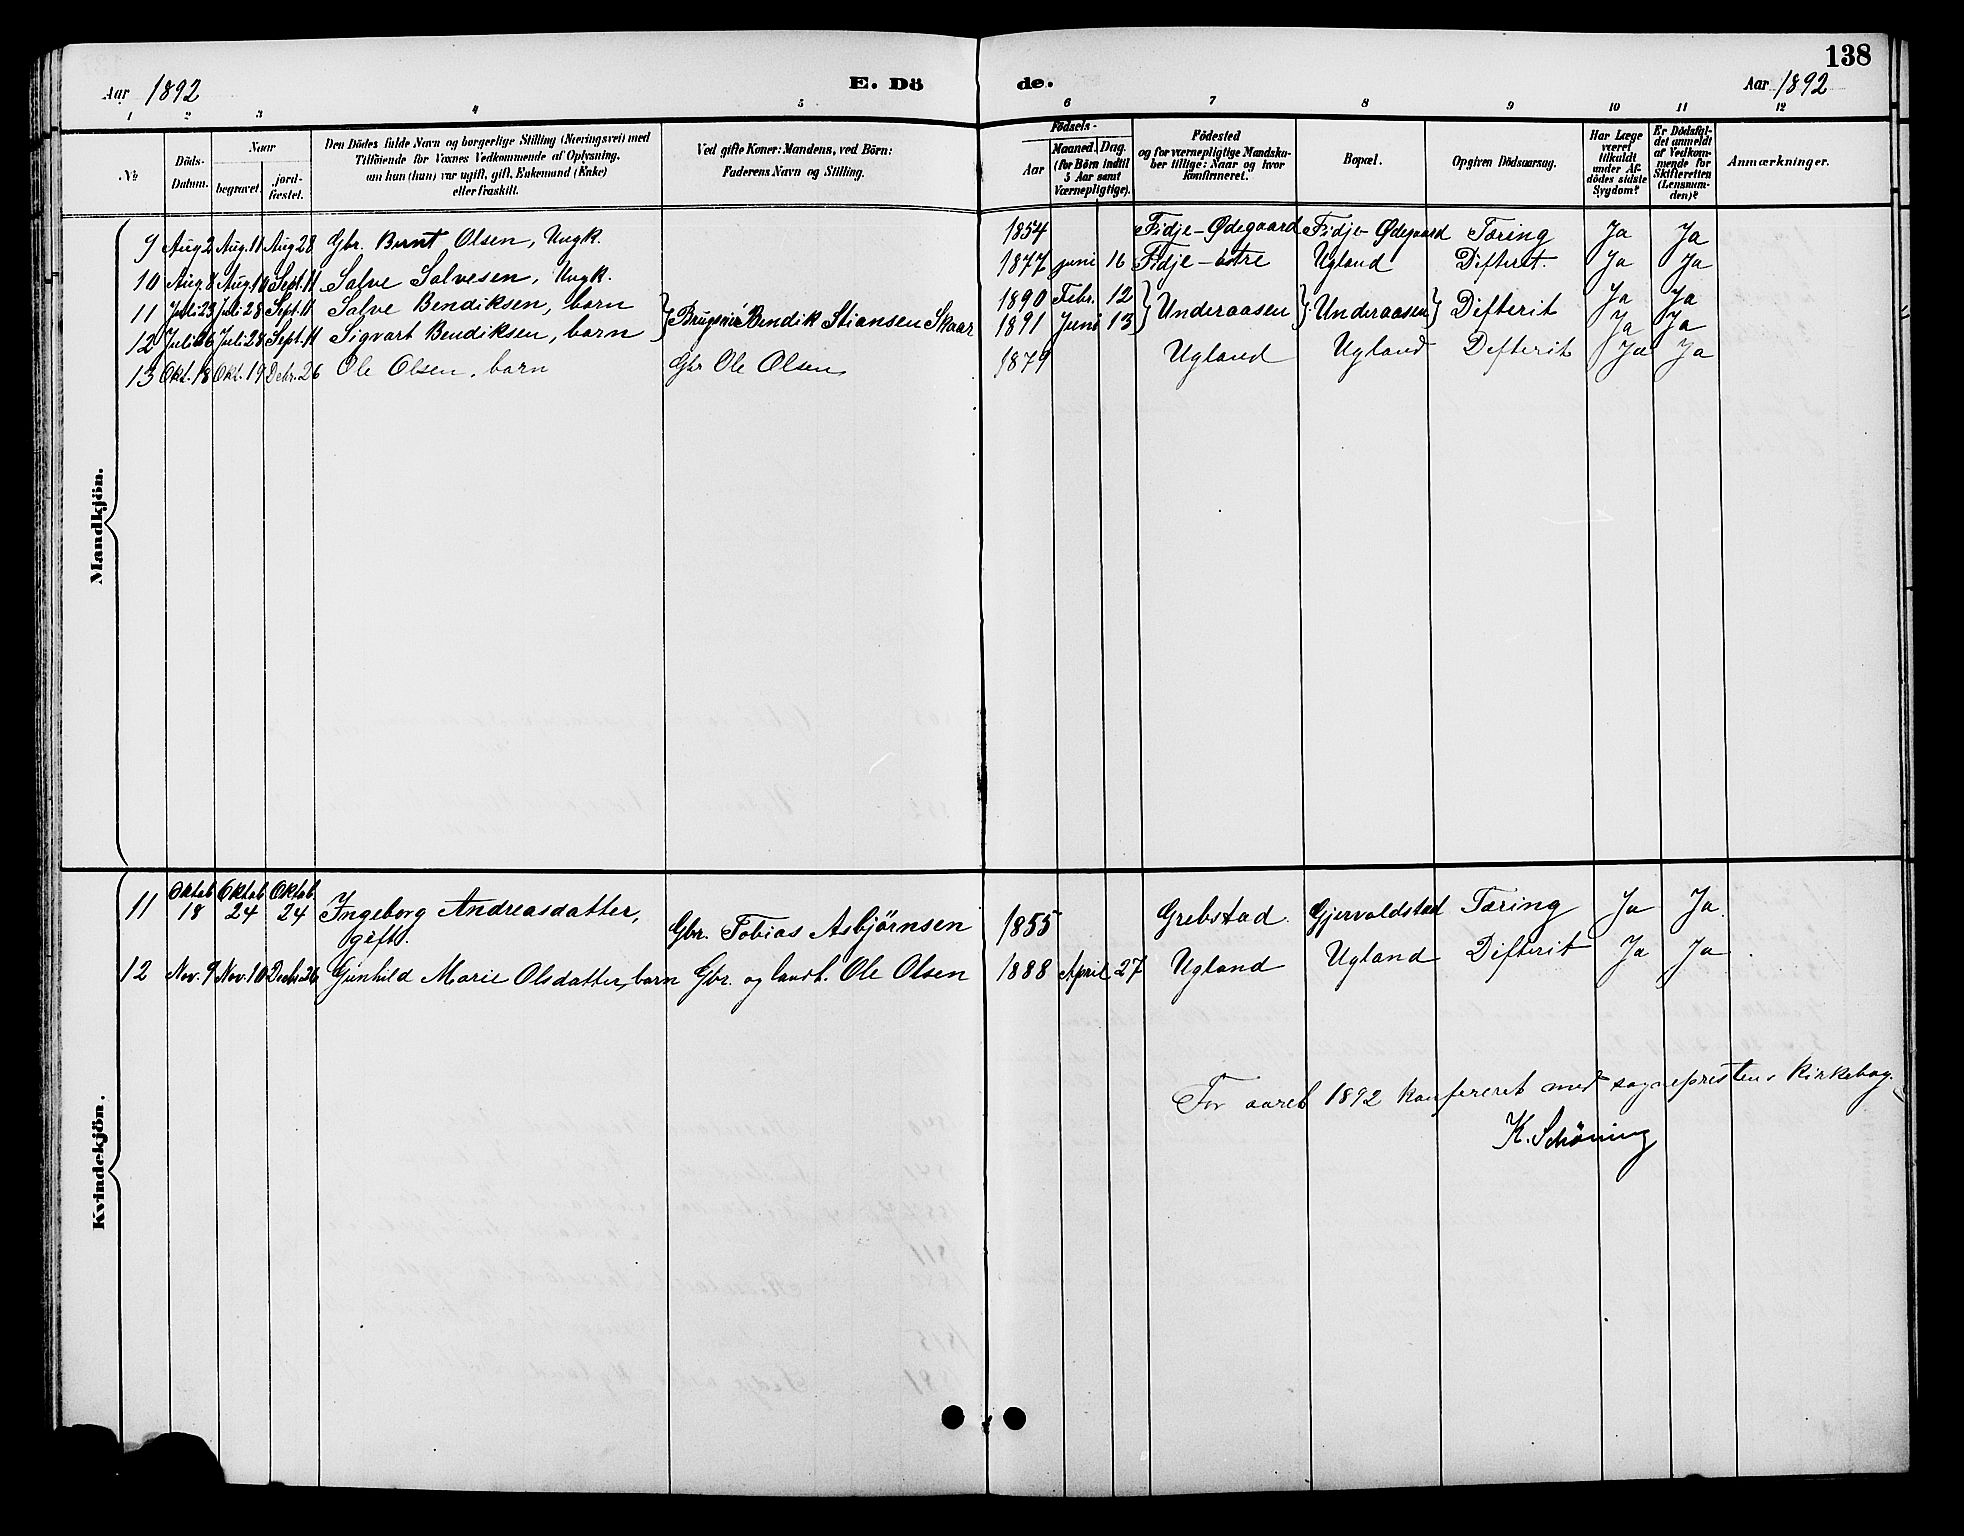 138
Aar 1892 E. Dö de. Aar 1892
1 2 3 4 5 6 7 8 9 10 11 12
No
Döds-Datum.
Naar
begravet. jordfæstet.
Den Dödes fulde Navn og borgerlige Stilling (Næringsvei) med
Tilföiende for Voxnes Vedkommende af Oplysning,
om han (hun) var ugift, gift, Enkemand (Enke)
eller fraskilt.
Ved gifte Koner: Mandens, ved Börn:
Faderens Navn og Stilling.
Födsels-
Aar
Maaned. Dag.
(for Börn indtil
5 Aar samt
Værnepligtige).
Födested
og for værnepligtige Mandskaber tillige: Naar og hvor
konfirmeret.
Bopæl.
Opgiven Dödsaarsag.
Har Læge
været
tilkaldt
under Afdödes sidste
Sygdom?
Er Dödsfaldet anmeldt
af Vedkommende for
Skifteretten
(Lensmanden)?
Anmærkninger.
Mandkjön.
9 Aug. 2 Aug. 11 Aug 28 Gbr. Bernt Olsen, Ungk. 1854 Fidje-Ødegaard Fidje-Ødegaard Tæring Ja Ja
10 Aug. 8 Aug. 10 Sept. 11 Salve Salvesen, Ungk. 1877 juni 16 Fidje-østre Ugland Difterit. Ja Ja
11 Juli 23 Juli 28 Sept. 11 Salve Bendiksen, barn } Bendik Stiansen Skaar 1890 Febr. 12 } Underaasen } Underaasen } Difterit Ja Ja
12 Juli 26 Juli 28 Sept. 11 Sigvart Bendiksen, barn 1891 Juni 13 Ja Ja
13 Okt. 18 Okt. 19 Debr. 26 Ole Olsen, barn Gbr Ole Olsen 1879 Ugland Ugland Difterit Ja Ja
Kvindekjön.
11 Oktob 18 Oktob 24 Oktob 24 Ingeborg Andreasdatter, gift. Gbr. Tobias Asbjørnsen 1855 Grebstad Gjervoldstad Tæring Ja Ja
12 Nov. 9 Nov. 10 Decbr. 26 Gunhild Marie Olsdatter, barn Gbr. og landh. Ole Olsen 1888 April 27 Ugland Ugland Difterit Ja Ja
For aaret 1892 konfereret med sogneprestens kirkebog.
K. Schöning